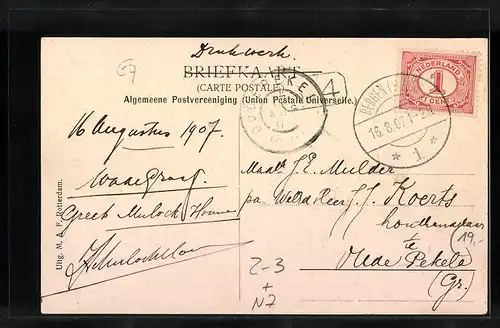 Drukwerk
BRIEFKAART
(CARTE POSTALE)
Algemeene Postvereeniging (Union Postale Universelle.)
NEDERLAND
1
CENT
16.8.07.1-2N
1
4
16 Augustus 1907.
Greet Mulock Houwer
Uitg. M. & F. Rotterdam.
J. E. Mulder
pa. WelEd. Heer J. J. Koerts
houthandelaar
te
Oude Pekela
(Gr.)
19,-
2-3
+
N7